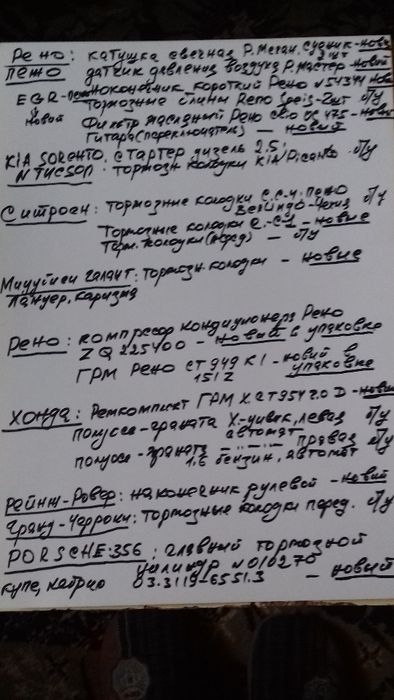 Рено: катушка свечная Р. Меган, Сценик - новая
Пежо датчик давления воздуха Р. Мастер - новый
EGR - Пежо наконечник короткий Рено N54344 нов
новый тормозные Рено 2шт б/у
Фильтр масляный Рено Clio 475 - новый
Гитара (переключатель) - новый
KIA SORENTO, стартер дизель 2,5;
N TUCSON тормозн. колодки KIA Picanto б/у
Ситроен: тормозные колодки Пежо
Берлинго б/у
Тормозные колодки - новые
Торм. колодки (перед) - б/у
Мицубиси галант: тормозн. колодки - новые
Лансер, каризма
Рено: компресор кондиционера Рено
ZQ 225400 - новый в упаковке
ГРМ Рено CT 949 K1 - новый в
1512 упаковке
Хонда: Ремкомплект ГРМ Х. CT954 2.0 D - новый
полуось-граната Х-цивик, левая б/у
автомат
полуось-граната - " - правая б/у
1,6 бензин, автомат
Рейнж-Ровер: наконечник рулевой - новый
Гранд-Чероки: тормозные колодки перед. б/у
PORSCHE-356: главный тормозной
цилиндр N010270
купе, кабрио 03.3119-6551.3 - новый